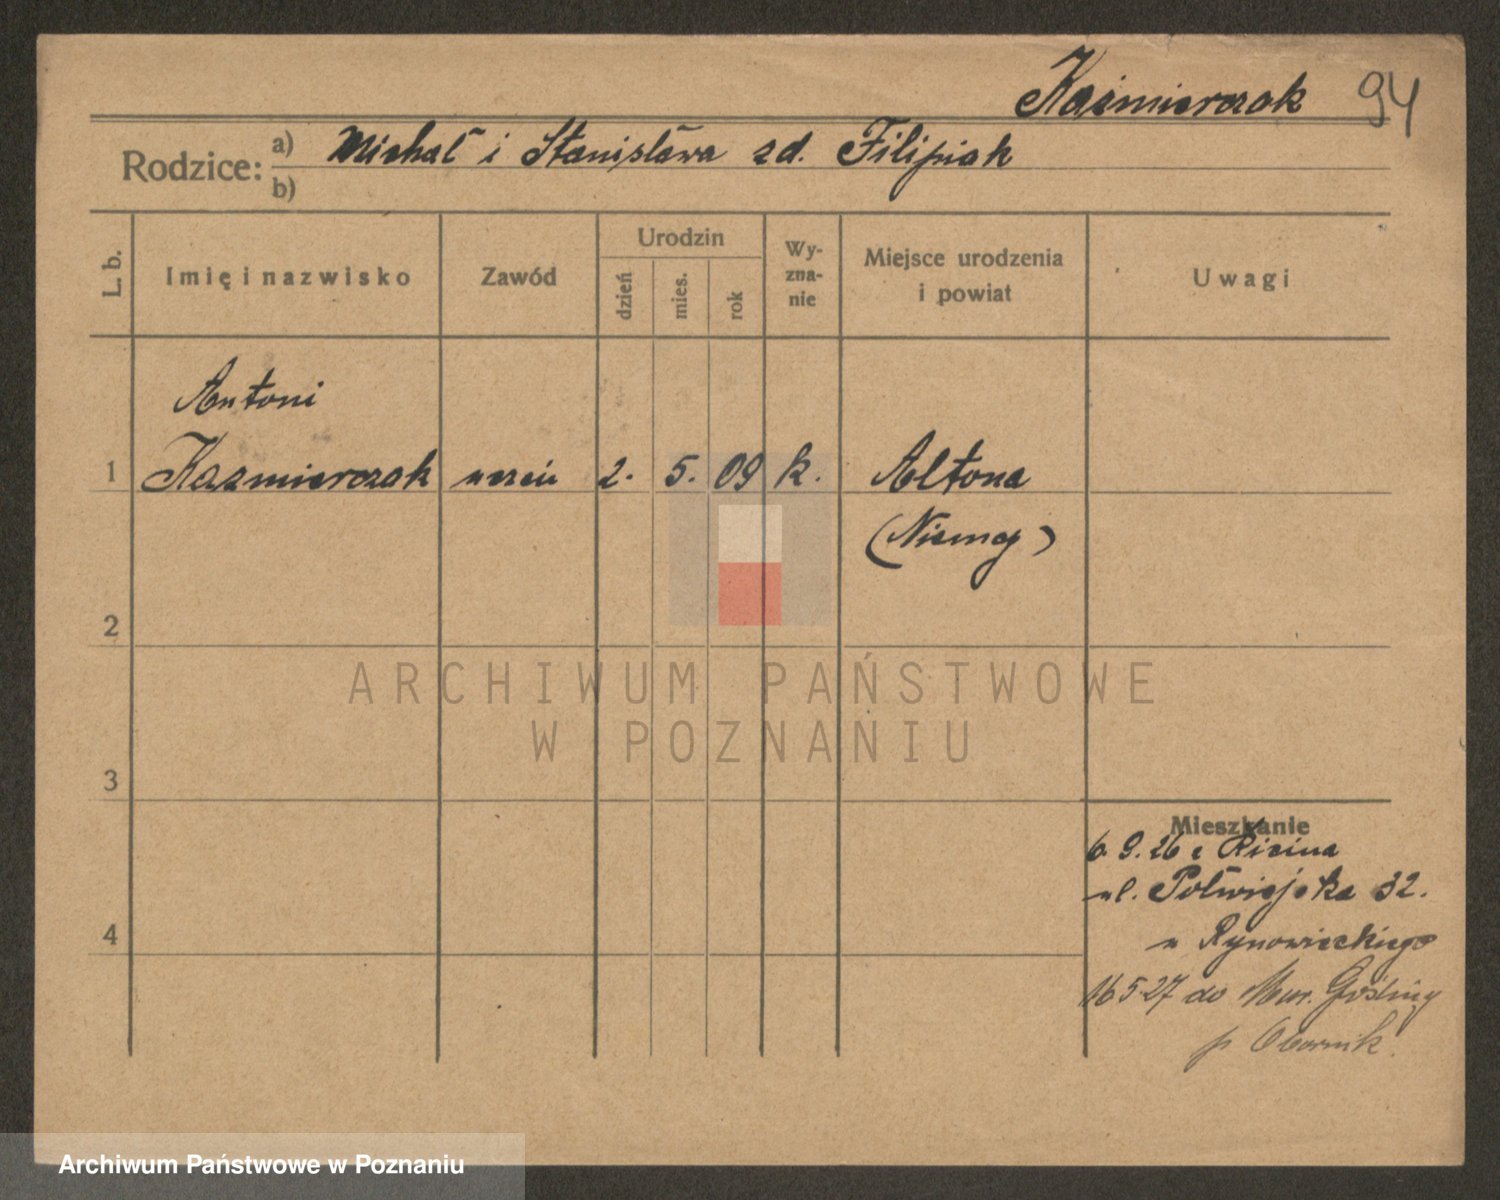 Kaźmierczak 94
Rodzice: a) Michał i Stanisława zd. Filipiak
b)
L. b.
Imię i nazwisko
Zawód
Urodzin
dzień
mies.
rok
Wy-
zna-
nie
Miejsce urodzenia
i powiat
Uwagi
Antoni
1 Kazmierczak uczeń 2. 5. 09 k. Altona
(Niemcy)
2
ARCHIWUM PAŃSTWOWE
W POZNANIU
3
Mieszkanie
6 9.26 z
ul. Półwiejska 32.
u Rynowieckiego
4
16 5 27 do Mur. Gośliny
p Obornik.
Archiwum Państwowe w Poznaniu